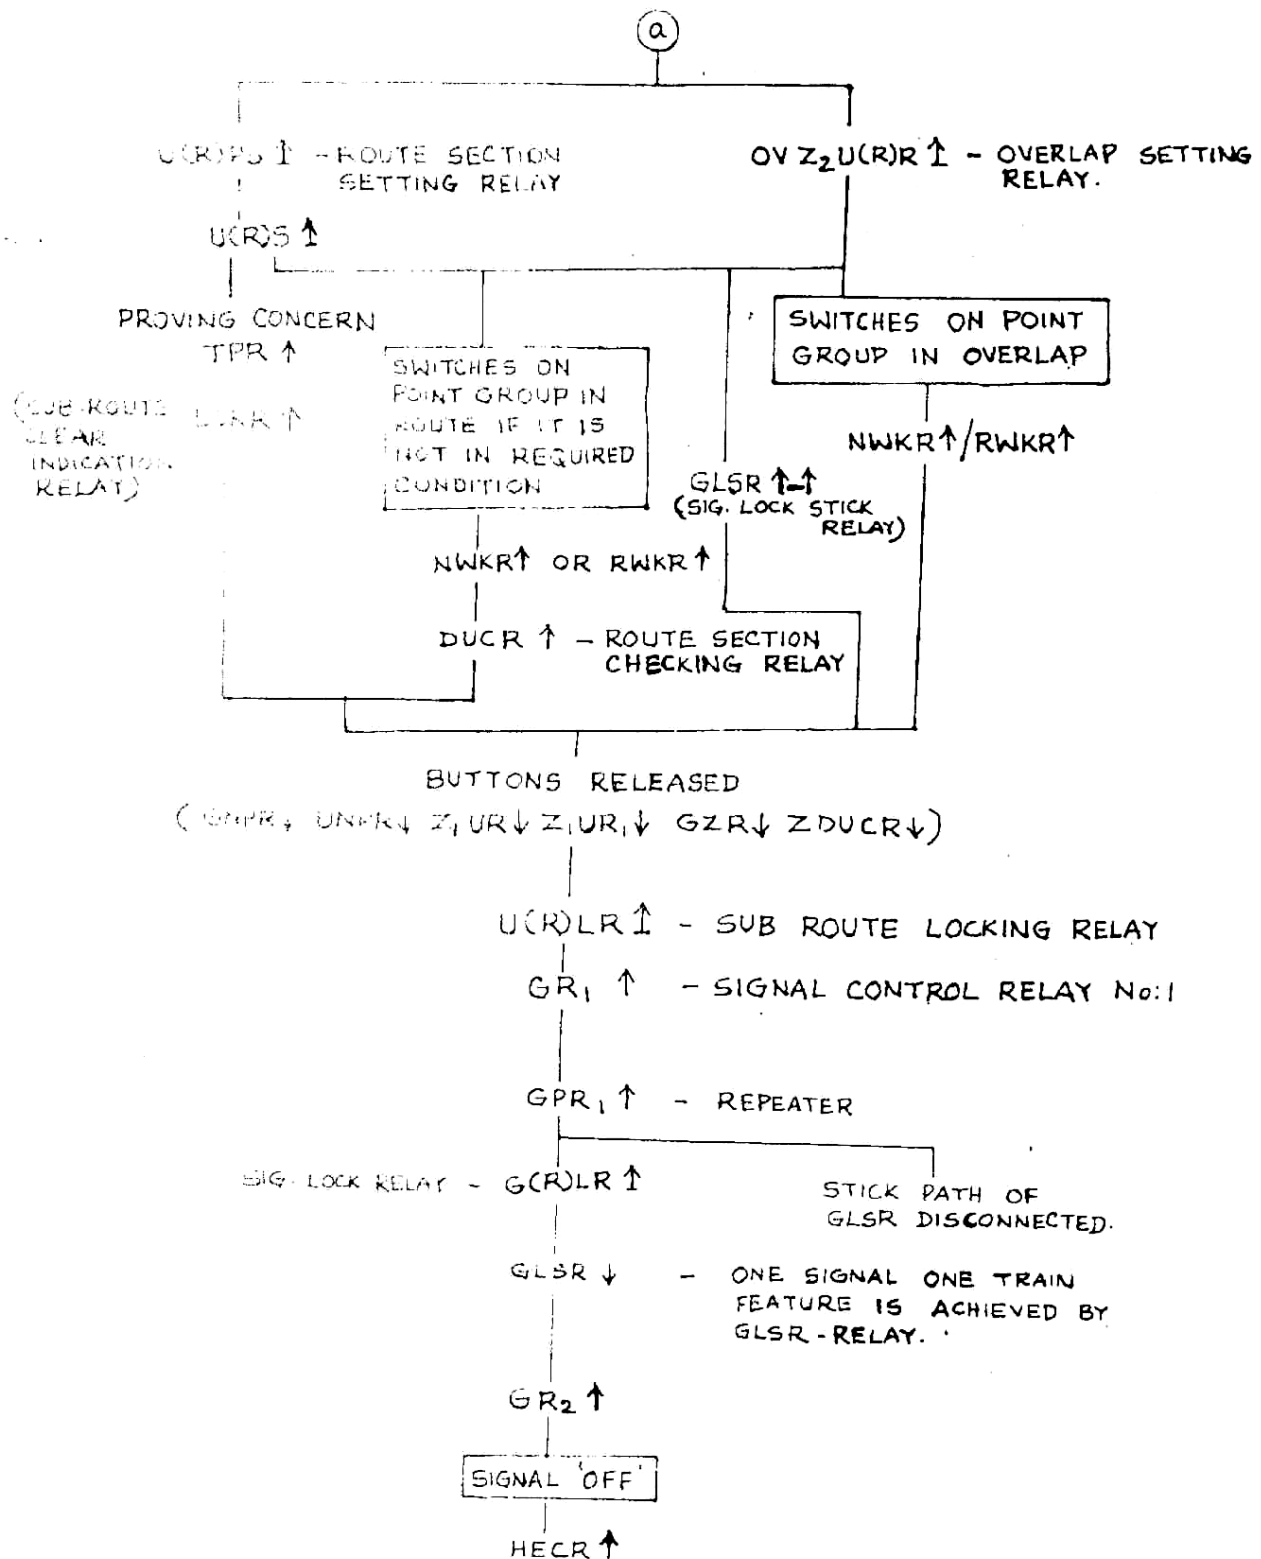 a
U(R)PS ↑ - ROUTE SECTION
SETTING RELAY
OV Z₂U(R)R ↑ - OVERLAP SETTING
RELAY.
U(R)S ↑
PROVING CONCERN
TPR ↑
SWITCHES ON POINT
GROUP IN OVERLAP
SWITCHES ON
POINT GROUP IN
ROUTE IF IT IS
NOT IN REQUIRED
CONDITION
(SUB-ROUTE
CLEAR
INDICATION
RELAY)
↑
NWKR↑/RWKR↑
GLSR ↑-↑
(SIG. LOCK STICK
RELAY)
NWKR↑ OR RWKR↑
DUCR ↑ - ROUTE SECTION
CHECKING RELAY
BUTTONS RELEASED
(GNPR↓ UNPR↓ Z₁UR↓ Z₁UR₁↓ GZR↓ ZDUCR↓)
U(R)LR ↑ - SUB ROUTE LOCKING RELAY
GR₁ ↑ - SIGNAL CONTROL RELAY No:1
GPR₁ ↑ - REPEATER
SIG. LOCK RELAY - G(R)LR ↑
STICK PATH OF
GLSR DISCONNECTED.
GLSR ↓ - ONE SIGNAL ONE TRAIN
FEATURE IS ACHIEVED BY
GLSR-RELAY.
GR₂ ↑
SIGNAL 'OFF'
HECR ↑